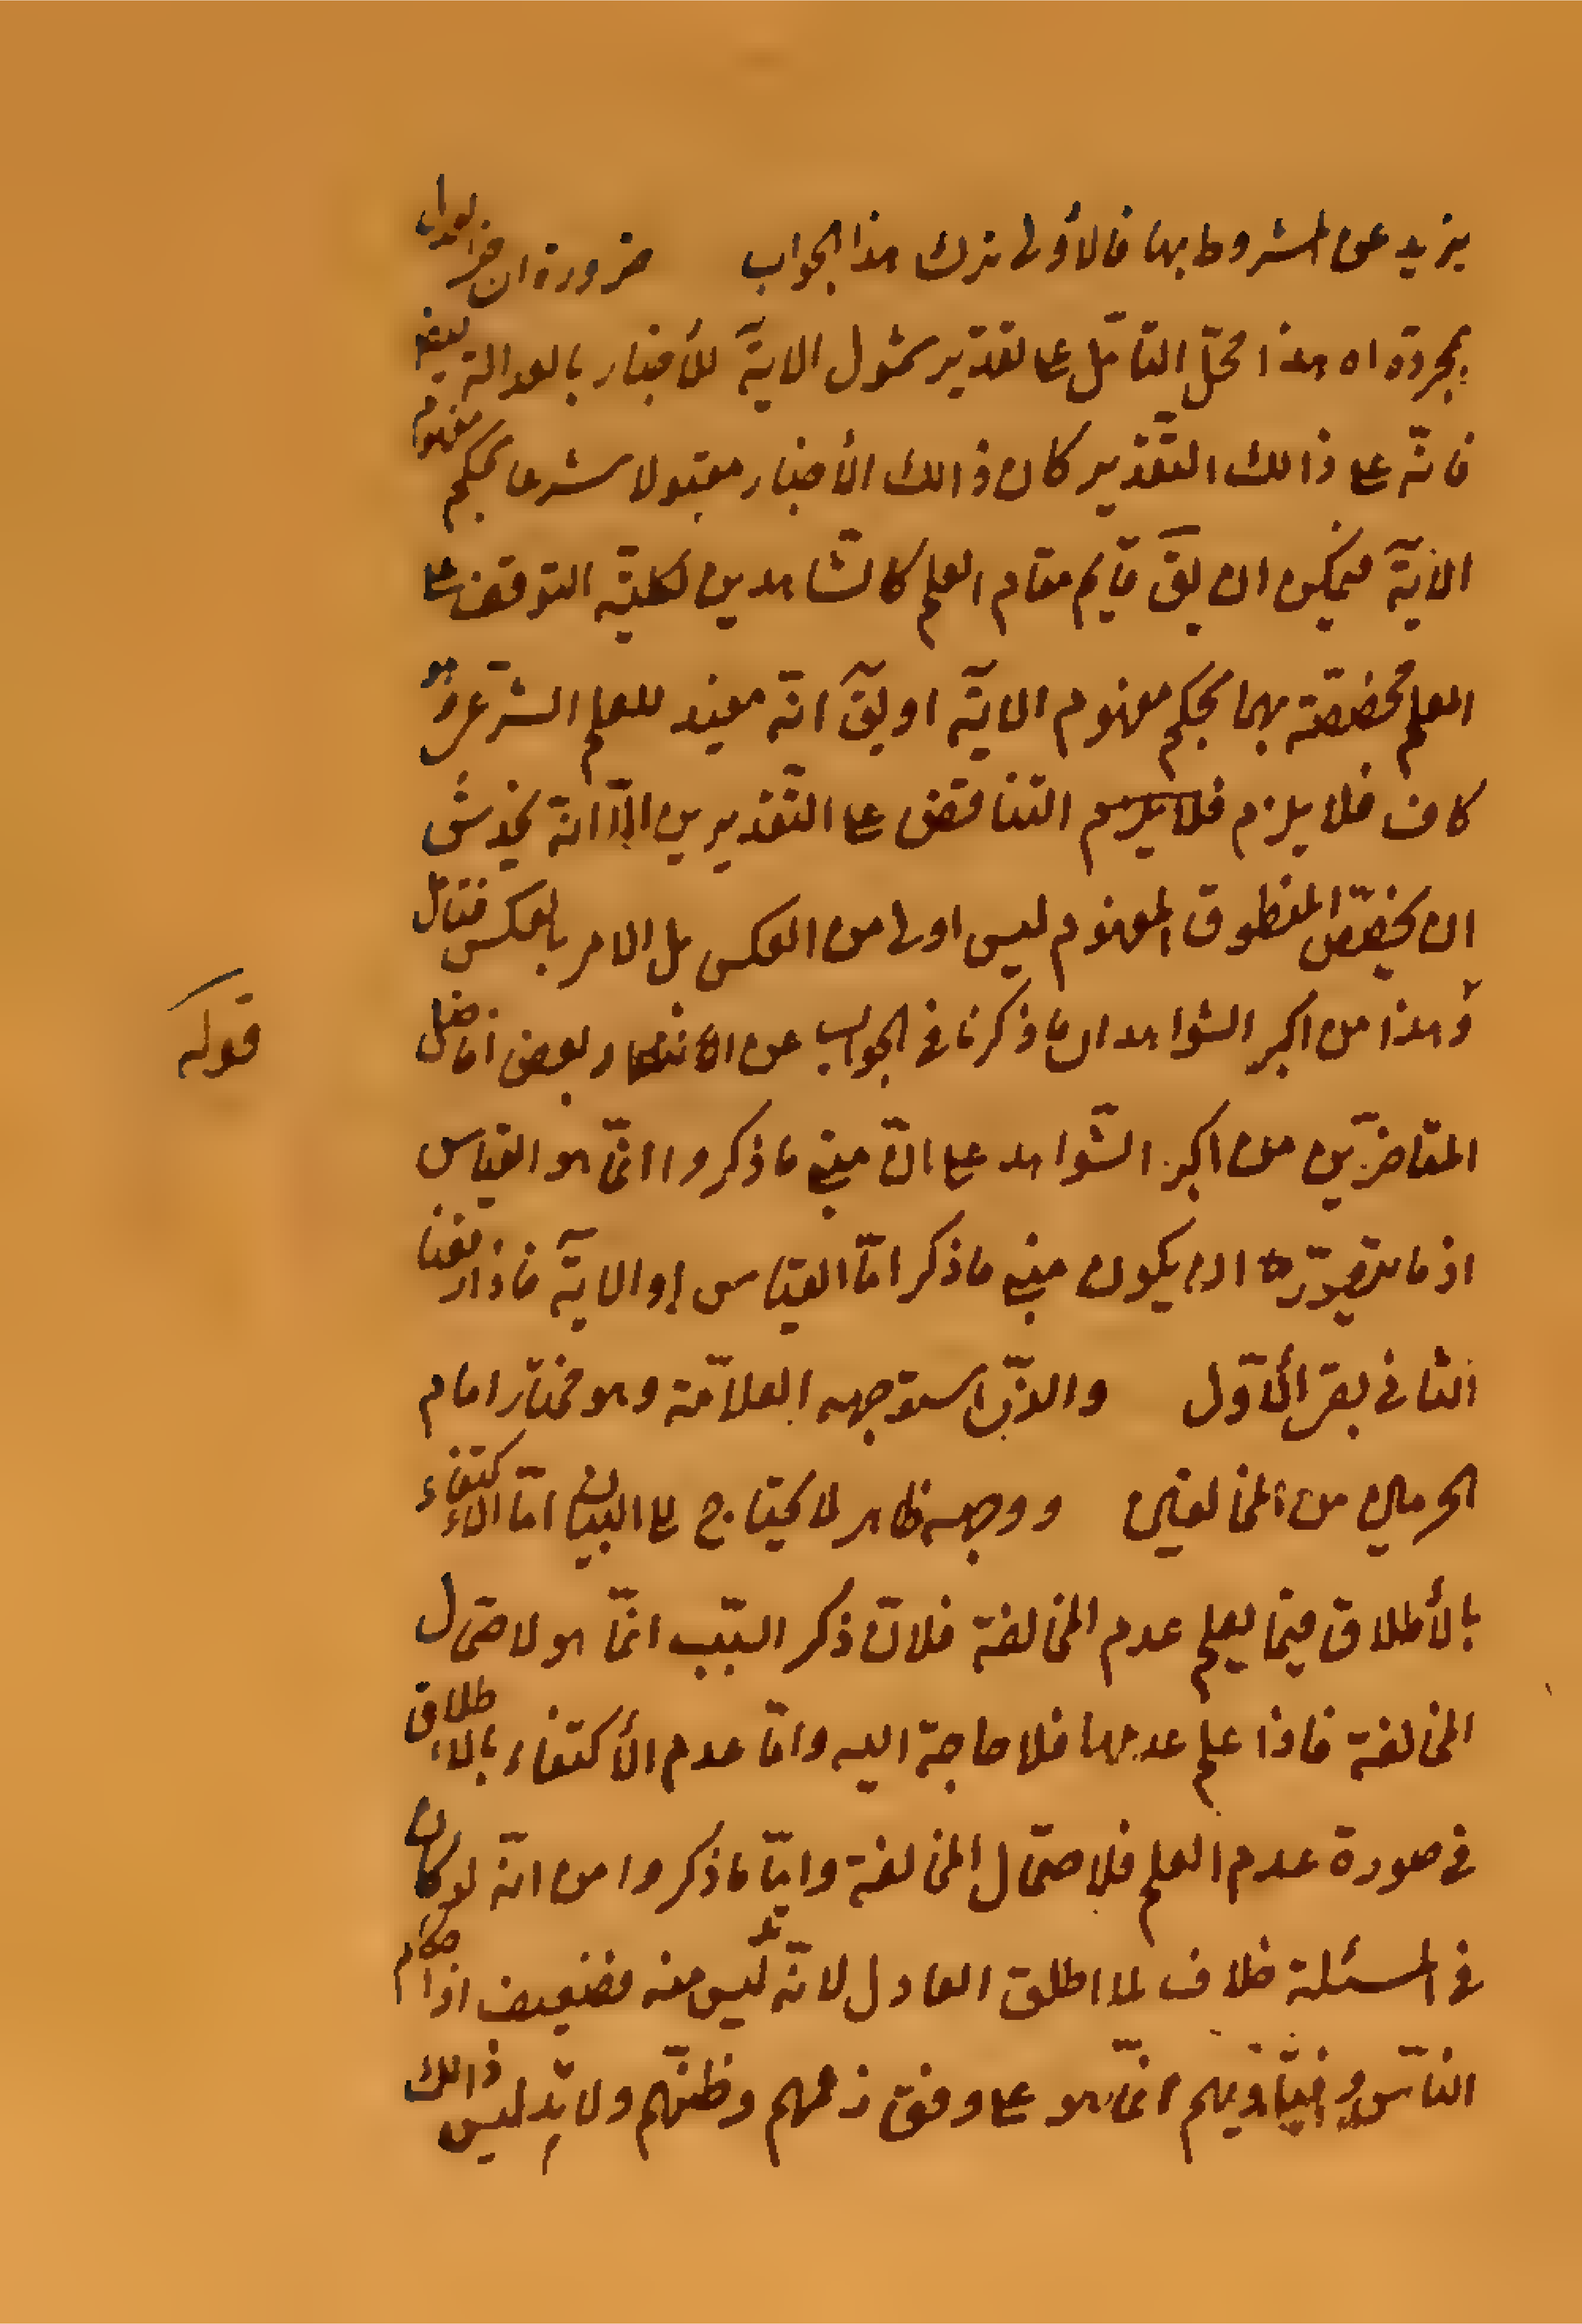 يزيد على المشروط بها فالأولى ترك هذا الجواب ضرورة ان خبر العدل
بمجرده اه هذا محلّ التأمّل على تقدير شمول الايةّ للأخبار بالعدالة
فانّه على ذالك التّقدير كان ذالك الأخبار مقبولا شرعا بحكم مفهوم
الايةّ فيمكن ان يقّ قايم مقام العلم كالشّاهدين لكليّة التوقف على
العلم مخصّصة بهما بحكم مفهوم الايةّ او يقّ انّه مفيد للعلم الشّرعى وهو
كاف فلا يلزم فلا يلزم التناقض على التّقديرين الّا انّه يخدش
ان يخصّص المنطوق المفهوم ليس اولى من العكس بل الامر بالعكس فتامّل
وهذا من اكبر الشواهد ان ما ذكرنا في الجواب عن بعض افاضل
المتاخرّين من اكبر الشّواهد على انّ مبنى ما ذكروا انّما هو القياس
اذ ما ان يكون مبنى ما ذكر امّا القياس او الايةّ فاذا رفعنا
الثانى بقى الأوّل والذّى استوجهه العلامّة وهو مختار امام
الحرمين من المخالفين ووجهه ظاهر لا يحتاج الى البيان امّا الاكتفاء
بالأطلاق فيما يعلم عدم المخالفة فلانّ ذكر السّبب انّما هو لاحتمال
المخالفة فاذا علم عدمها فلا حاجة اليه وامّا عدم الأكتفاء بالاطلاق
في صورة عدم العلم فلاحتمال المخالفة وامّا ما ذكروا من انّه لو كان
في المسئلة خلاف لما اطلق العادل لانّه تدليس منه فضعيف اذ احكام
النّاس وفتاويهم انّما هو على وفق زعمهم وظنّهم ولا تدليس ذالك
قوله